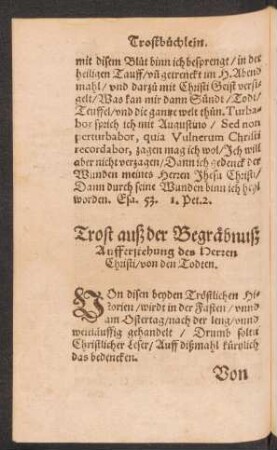 Trostbüchlein.
mit disem Blůt binn ich besprengt / in der
heiligen Tauff / vñ getrenckt im H. Abend
mahl / vnd darzů mit Christi Geist versi-
gelt / Was kan mir dann Sünde / Todt /
Teuffel / vnd die gantze welt thůn. Turba-
bor sprich ich mit Augustino / Sed non
perturbabor, quia Vulnerum Christi
recordabor, zagen mag ich wol / Ich will
aber nicht verzagen / Dann ich gedenck der
Wunden meines Herren Jhesu Christi /
Dann durch seine Wunden binn ich heyl
worden. Esa. 53. 1. Pet. 2.
Trost auß der Begräbnuß
Aufferstehung des Herren
Christi / von den Todten.
VOn disen beyden Tröstlichen Hi-
storien / wirdt in der Fasten / vnnd
am Ostertag / nach der leng / vnnd
weitläuffig gehandelt / Drumb soltu
Christlicher Leser / Auff dißmahl kürtzlich
das bedencken.
Von